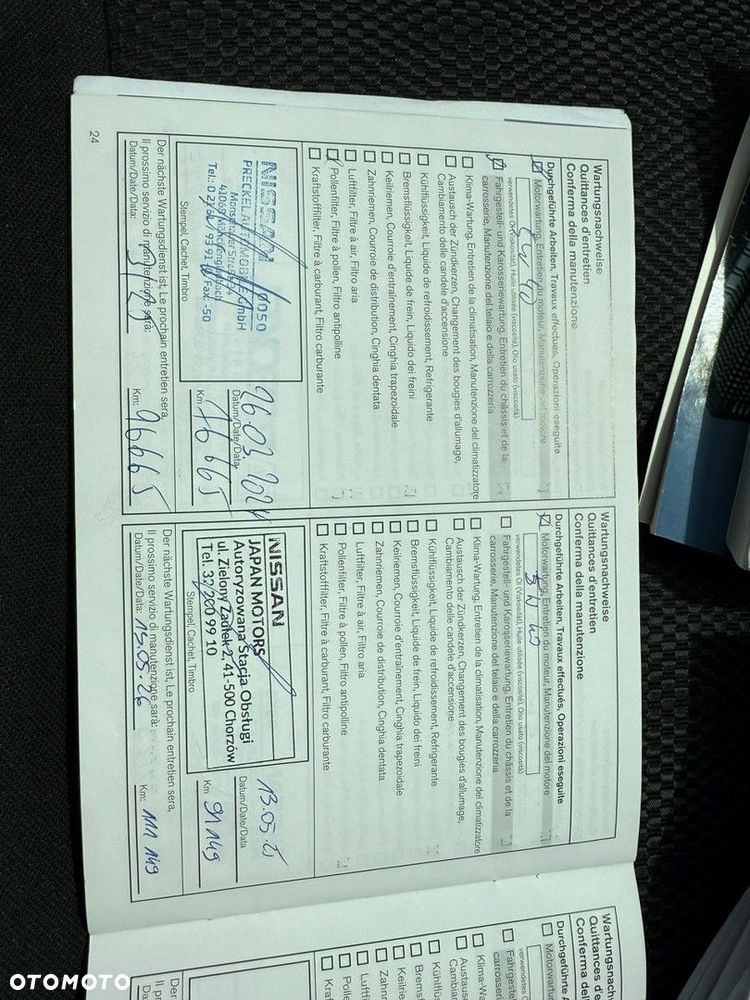 Wartungsnachweise
Quittances d'entretien
Conferma della manutenzione
Durchgeführte Arbeiten, Travaux effectués, Operazioni eseguite
Motorwartung, Entretien du moteur, Manutenzione del motore
verwendetes Öl (Viskosität), Huile utilisée (viscosité), Olio usato (viscosità)
5W40
Fahrgestell- und Karosseriewartung, Entretien du châssis et de la
carrosserie, Manutenzione del telaio e della carrozzeria
Klima-Wartung, Entretien de la climatisation, Manutenzione del climatizzatore
Austausch der Zündkerzen, Changement des bougies d'allumage,
Cambiamento delle candele d'accensione
Kühlflüssigkeit, Liquide de refroidissement, Refrigerante
Bremsflüssigkeit, Liquide de frein, Liquido dei freini
Keilriemen, Courroie d'entraînement, Cinghia trapezoidale
Zahnriemen, Courroie de distribution, Cinghia dentata
Luftfilter, Filtre à air, Filtro aria
Pollenfilter, Filtre à pollen, Filtro antipolline
Kraftstofffilter, Filtre à carburant, Filtro carburante
NISSAN
PRECKEL AUTOMOBILE GmbH
26.03.2024
Datum/Date/Data
Km 76665
Stempel, Cachet, Timbro
Der nächste Wartungsdienst ist, Le prochain entretien sera,
Il prossimo servizio di manutenzione sarà:
Datum/Date/Data:
Km: 96665
24
Wartungsnachweise
Quittances d'entretien
Conferma della manutenzione
Durchgeführte Arbeiten, Travaux effectués, Operazioni eseguite
Motorwartung, Entretien du moteur, Manutenzione del motore
verwendetes Öl (Viskosität), Huile utilisée (viscosité), Olio usato (viscosità)
5W40
Fahrgestell- und Karosseriewartung, Entretien du châssis et de la
carrosserie, Manutenzione del telaio e della carrozzeria
Klima-Wartung, Entretien de la climatisation, Manutenzione del climatizzatore
Austausch der Zündkerzen, Changement des bougies d'allumage,
Cambiamento delle candele d'accensione
Kühlflüssigkeit, Liquide de refroidissement, Refrigerante
Bremsflüssigkeit, Liquide de frein, Liquido dei freini
Keilriemen, Courroie d'entraînement, Cinghia trapezoidale
Zahnriemen, Courroie de distribution, Cinghia dentata
Luftfilter, Filtre à air, Filtro aria
Pollenfilter, Filtre à pollen, Filtro antipolline
Kraftstofffilter, Filtre à carburant, Filtro carburante
NISSAN
JAPAN MOTORS
Autoryzowana Stacja Obsługi
ul. Zielony Zaułek 2, 41-500 Chorzów
Tel. 32 220 99 10
13.05.25
Datum/Date/Data
Km 91149
Stempel, Cachet, Timbro
Der nächste Wartungsdienst ist, Le prochain entretien sera,
Il prossimo servizio di manutenzione sarà:
Datum/Date/Data: 15.05.26
Km: 111 149
Wartungsnach
Quittances d'e
Conferma del
Durchgeführte
Motorwart
verwendetes
Fahrgeste
carrosser
Klima-Wa
Austausc
Cambia
Kühlflüs
Brems
Keilrie
Zahn
Luft
Polle
Kra
Der
Il pr
Da
OTOMOTO